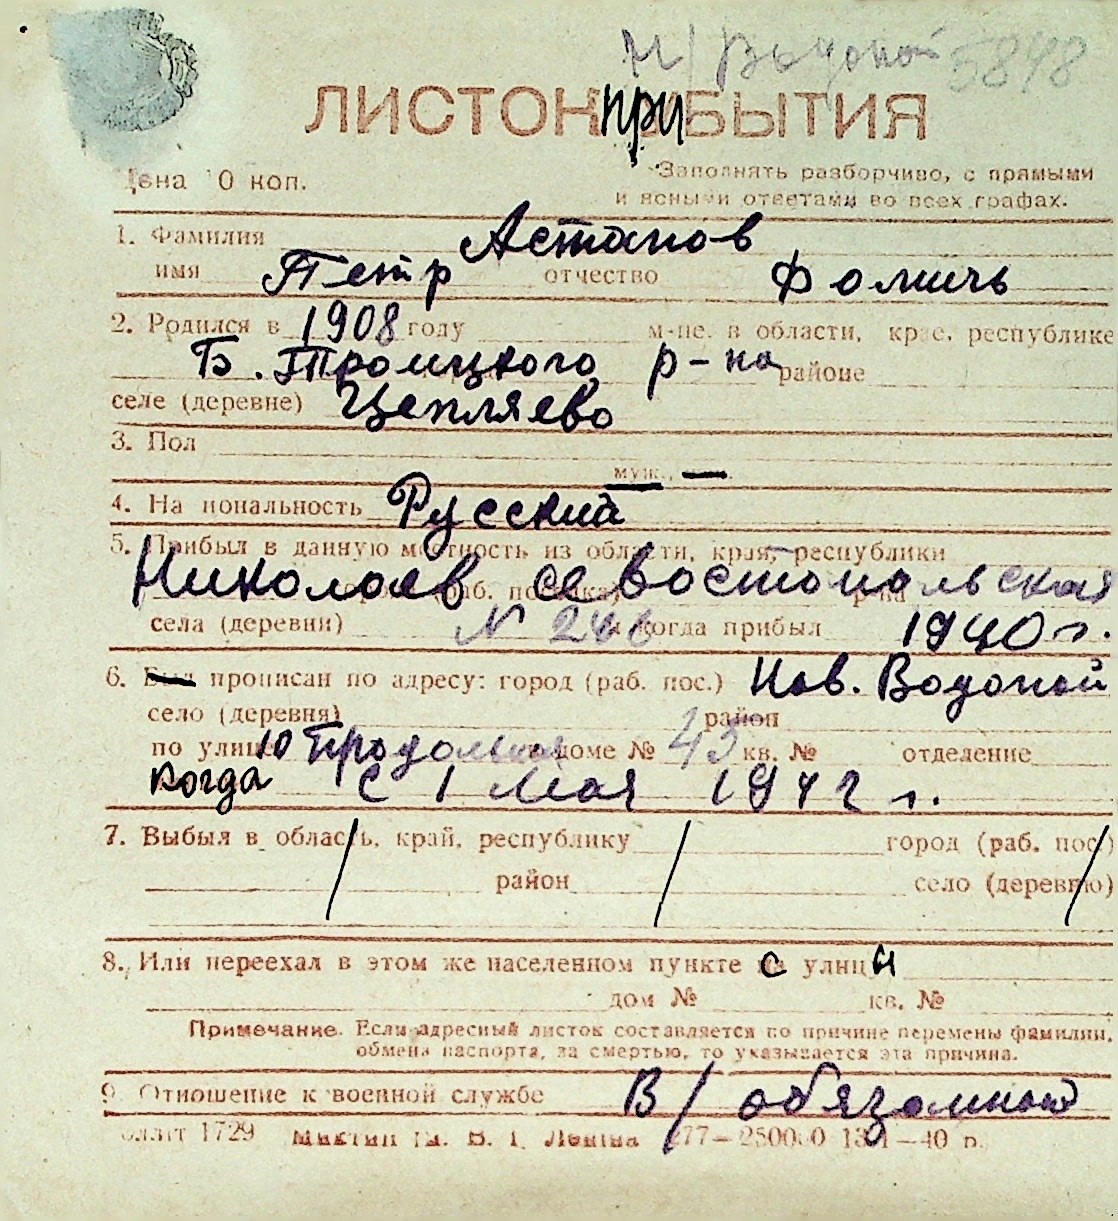 Н/Водопой 5848
ЛИСТОК ПРИБЫТИЯ
Цена 10 коп.
Заполнять разборчиво, с прямыми
и ясными ответами во всех графах.
1. Фамилия Астапов
имя Петр отчество Фомичь
2. Родился в 1908 году м-це, в области, крае, республике
Б. Троицкого р-на районе
селе (деревне) Цепляево
3. Пол
муж.,
4. Национальность Русский
5. Прибыл в данную местность из области, края, республики
Николаев Севостопальская
села (деревни) N и когда прибыл 1940 г.
6. прописан по адресу: город (раб. пос.) Нов. Водопой
село (деревня) район
по улице 10 Продольная доме № 45 кв. № отделение
когда с 1 Мая 1942 г.
7. Выбыл в область, край, республику город (раб. пос.)
район село (деревню)
8. Или переехал в этом же населенном пункте с улицы
дом № кв. №
Примечание. Если адресный листок составляется по причине перемены фамилии,
обмена паспорта, за смертью, то указывается эта причина.
9. Отношение к военной службе В/обязанный
1729 Ленина 250000 —40 р.